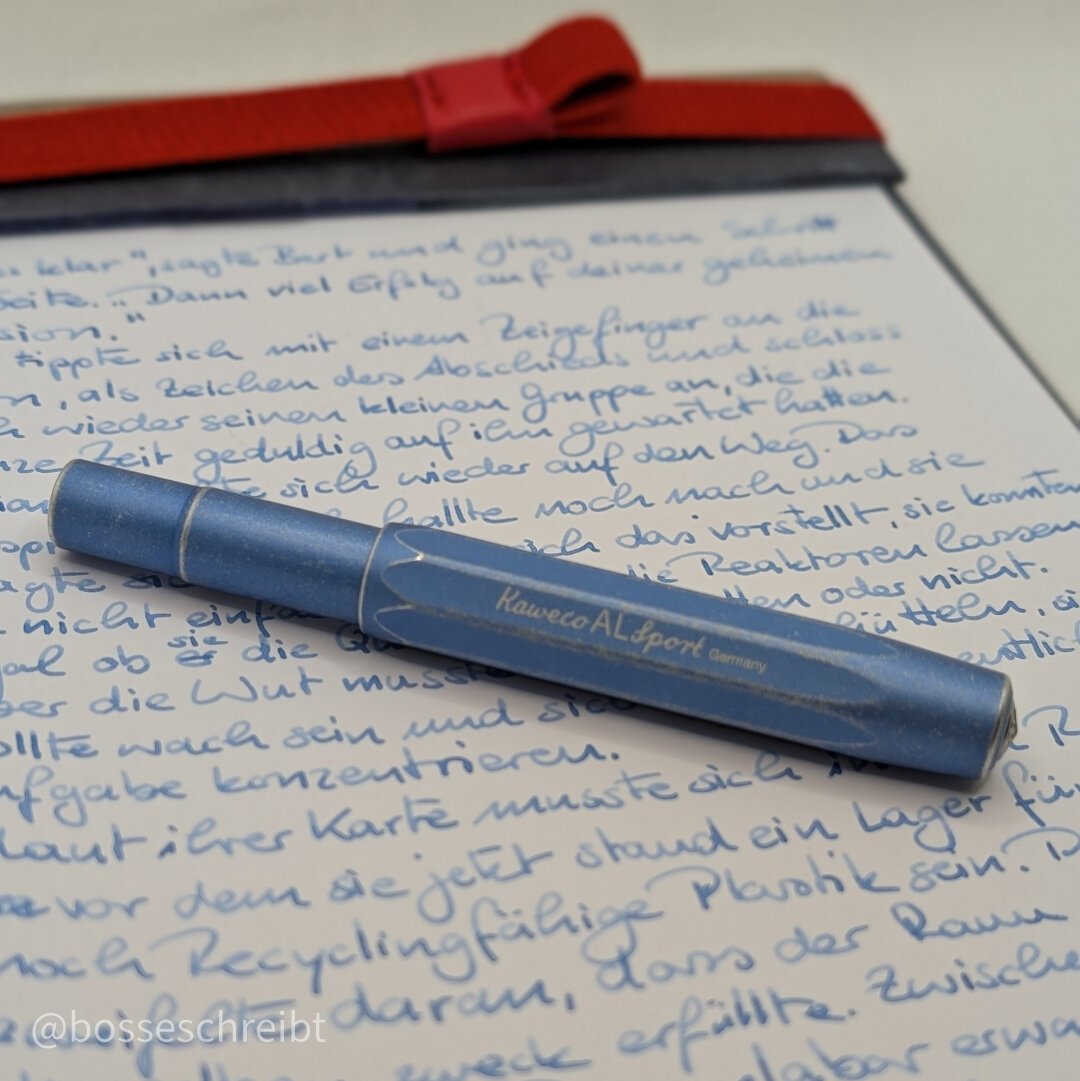 klar", sagte Bert und ging einen Schritt
Seite. „Dann viel Erfolg auf deiner geheimen
sion."
tippte sich mit einem Zeigefinger an die
n, als Zeichen des Abschieds und schloss
h wieder seinen kleinen Gruppe an, die die
nze Zeit geduldig auf ihn gewartet hatten.
te sich wieder auf den Weg. Das
hallte noch nach und sie
sich das vorstellt, sie konnten
agte sic die Reaktoren lassen
nicht einfa tten oder nicht.
gal ob sie die Qu ütteln, si
ber die Wut musste entlich
ollte wach sein und sic
ufgabe konzentrieren.
Laut ihrer Karte musste sich in R
vor dem sie jetzt stand ein Lager für
noch Recyclingfähige Plastik sein. D
zweifelte daran, dass der Raum
zweck erfüllte. Zwische
erwa
Kaweco AL Sport Germany
@bosseschreibt